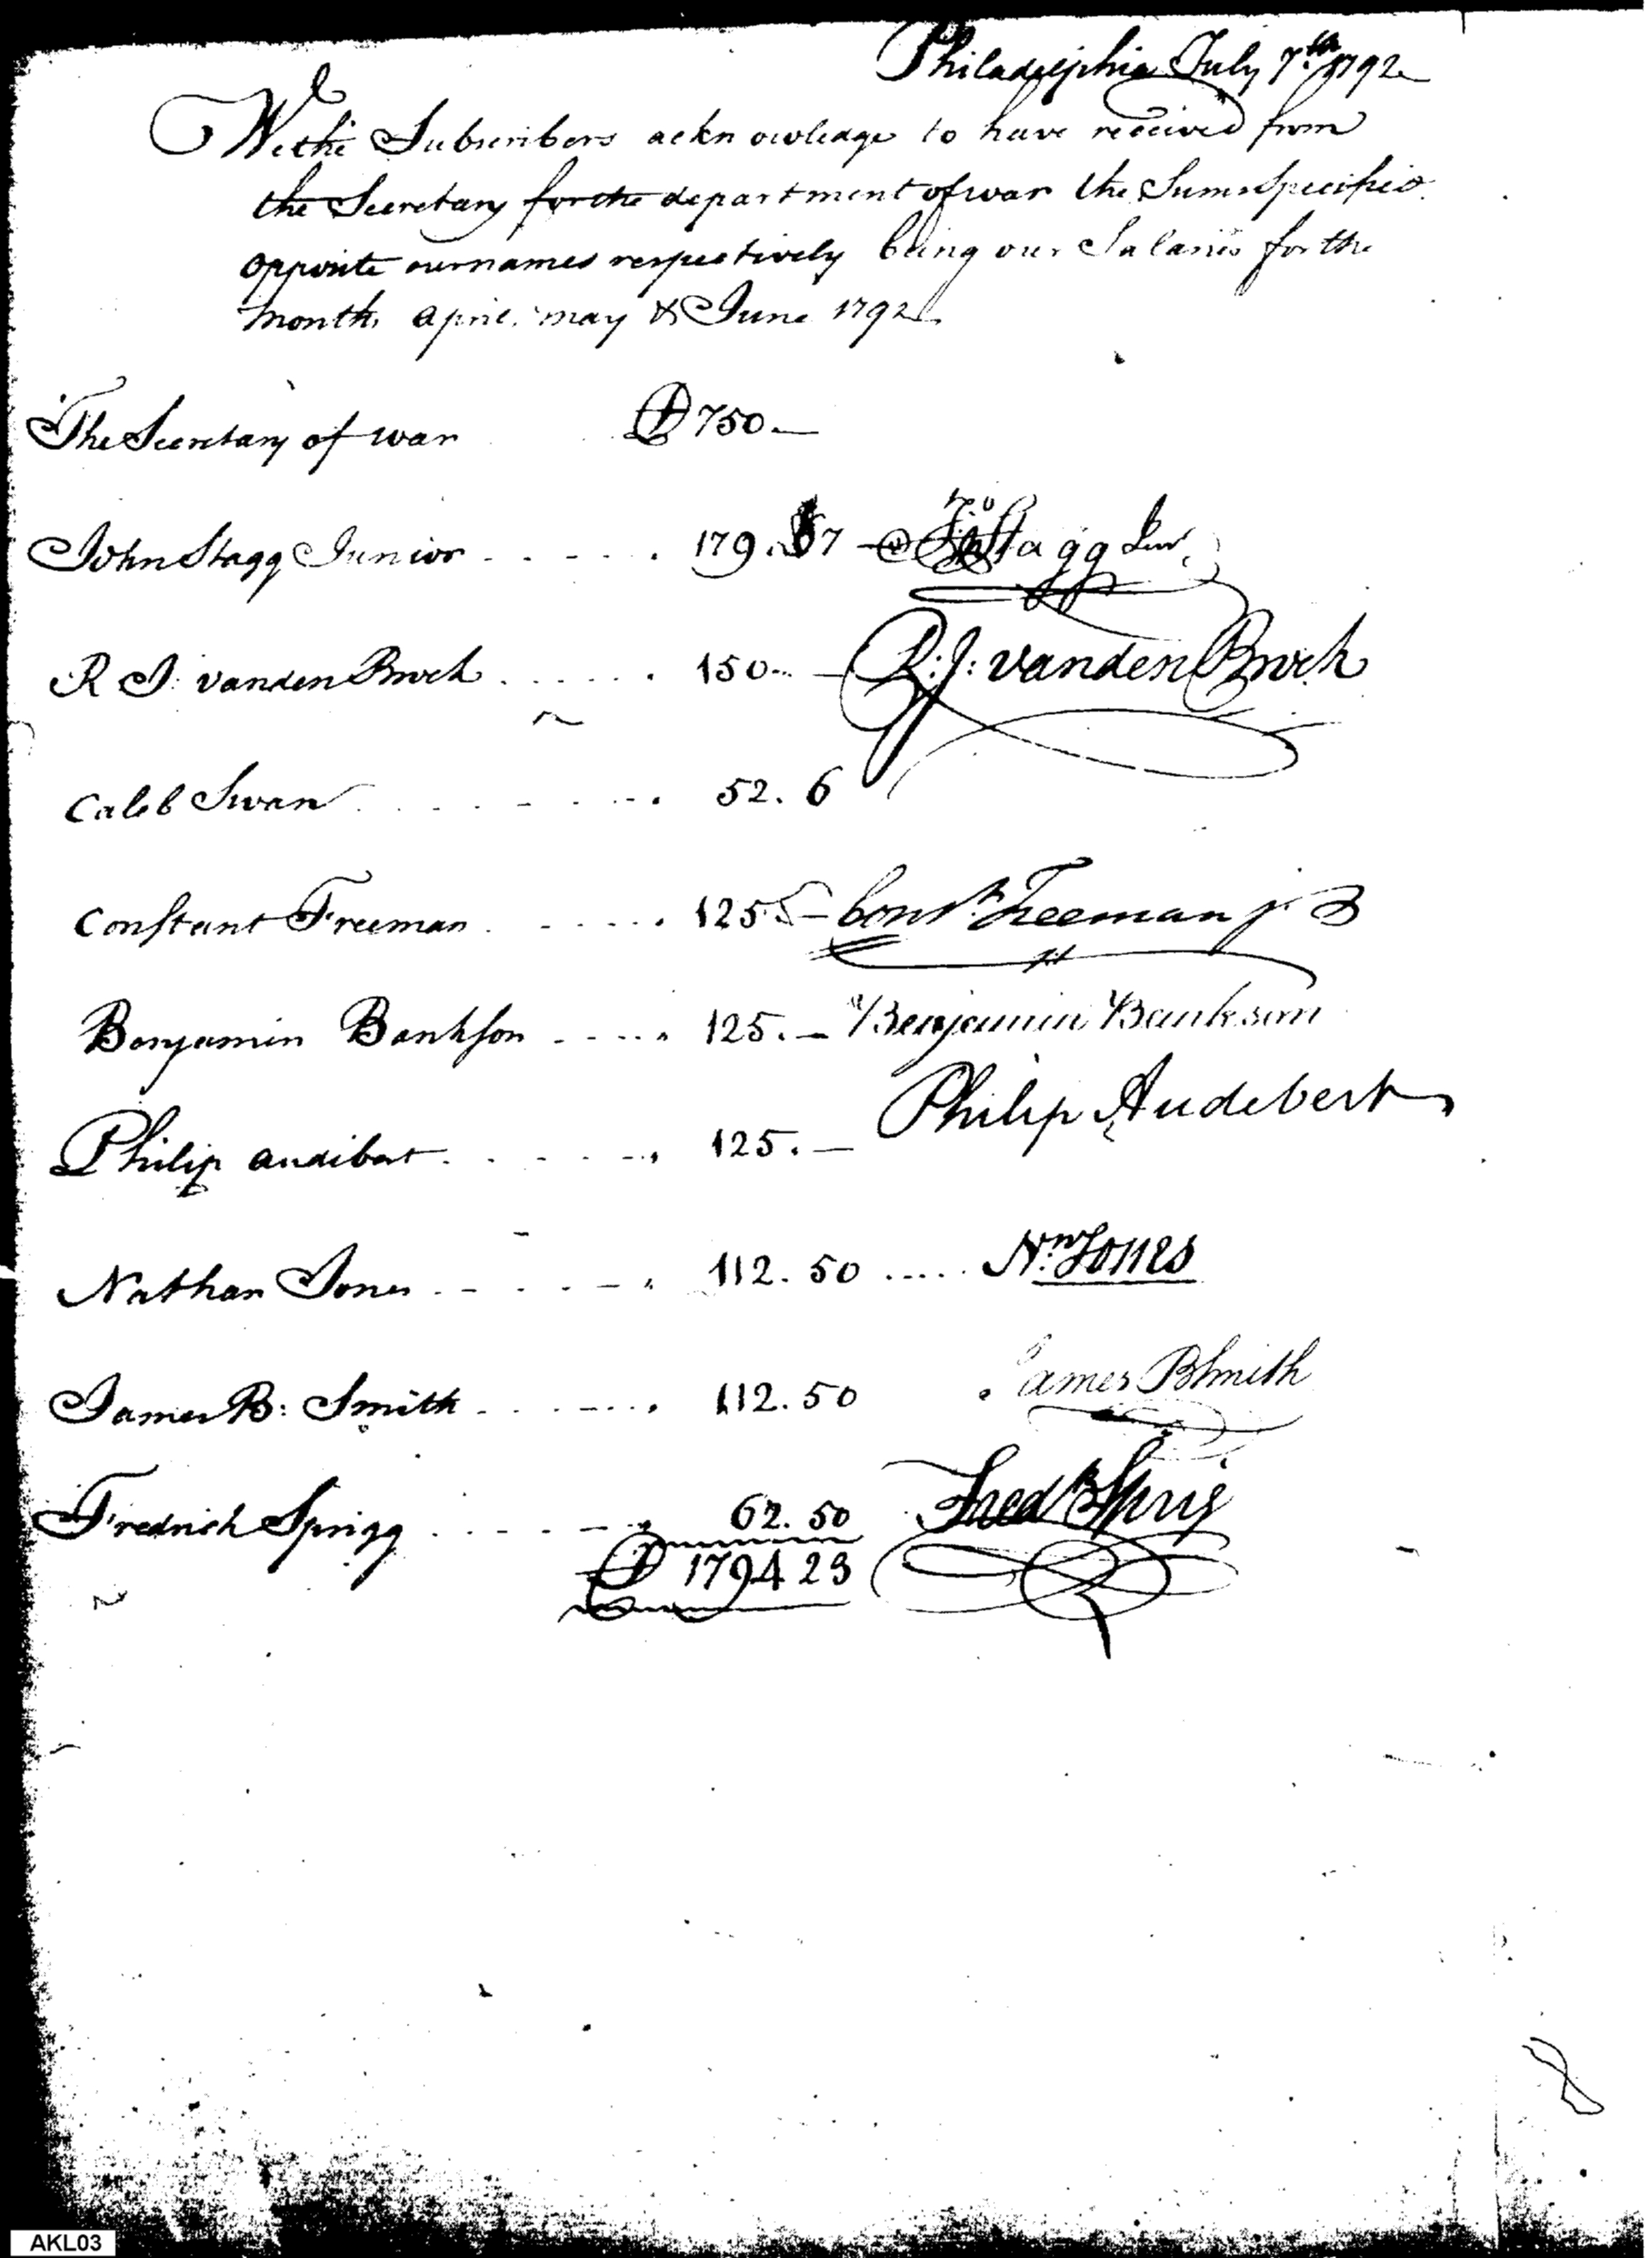 Philadelphia July 7.th 1792
We the Subscribers acknowledge to have received from
the Secretary for the department of war the Sums Specified
opposite our names respectively being our Salaries for the
months april, may & June 1792
The Secretary of war D 750.—
John Stagg Junior . . . . . 179. 67 — Jno Stagg Junr.
R J: vanden Broek . . . . . . 150.. — R: J: vanden Broek
Caleb Swan . . . . . . . 52. 6
Constant Freeman . . . . . . 125 — Const. Freeman jr
Benjamin Bankson . . . . . 125. — Benjamin Bankson
Philip audibert . . . . . . 125. — Philip Audebert
Nathan Jones . . . . . . 112. 50 ..... Nn. Jones
James B: Smith . . . . . . 112. 50 James B Smith
Fredrick Sprigg . . . . . . 62. 50 Fredk Sprig
D 1794 23
AKL03